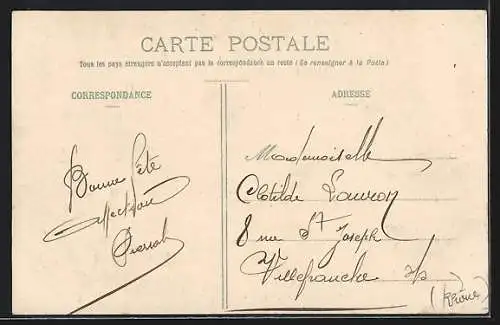 CARTE POSTALE
Tous les pays étrangers n'acceptent pas la correspondance au recto (Se renseigner à la Poste)
CORRESPONDANCE
ADRESSE
Bonne fête
Mademoiselle
Clotilde
8 rue St Joseph
Villefranche s/s
(Rhône)